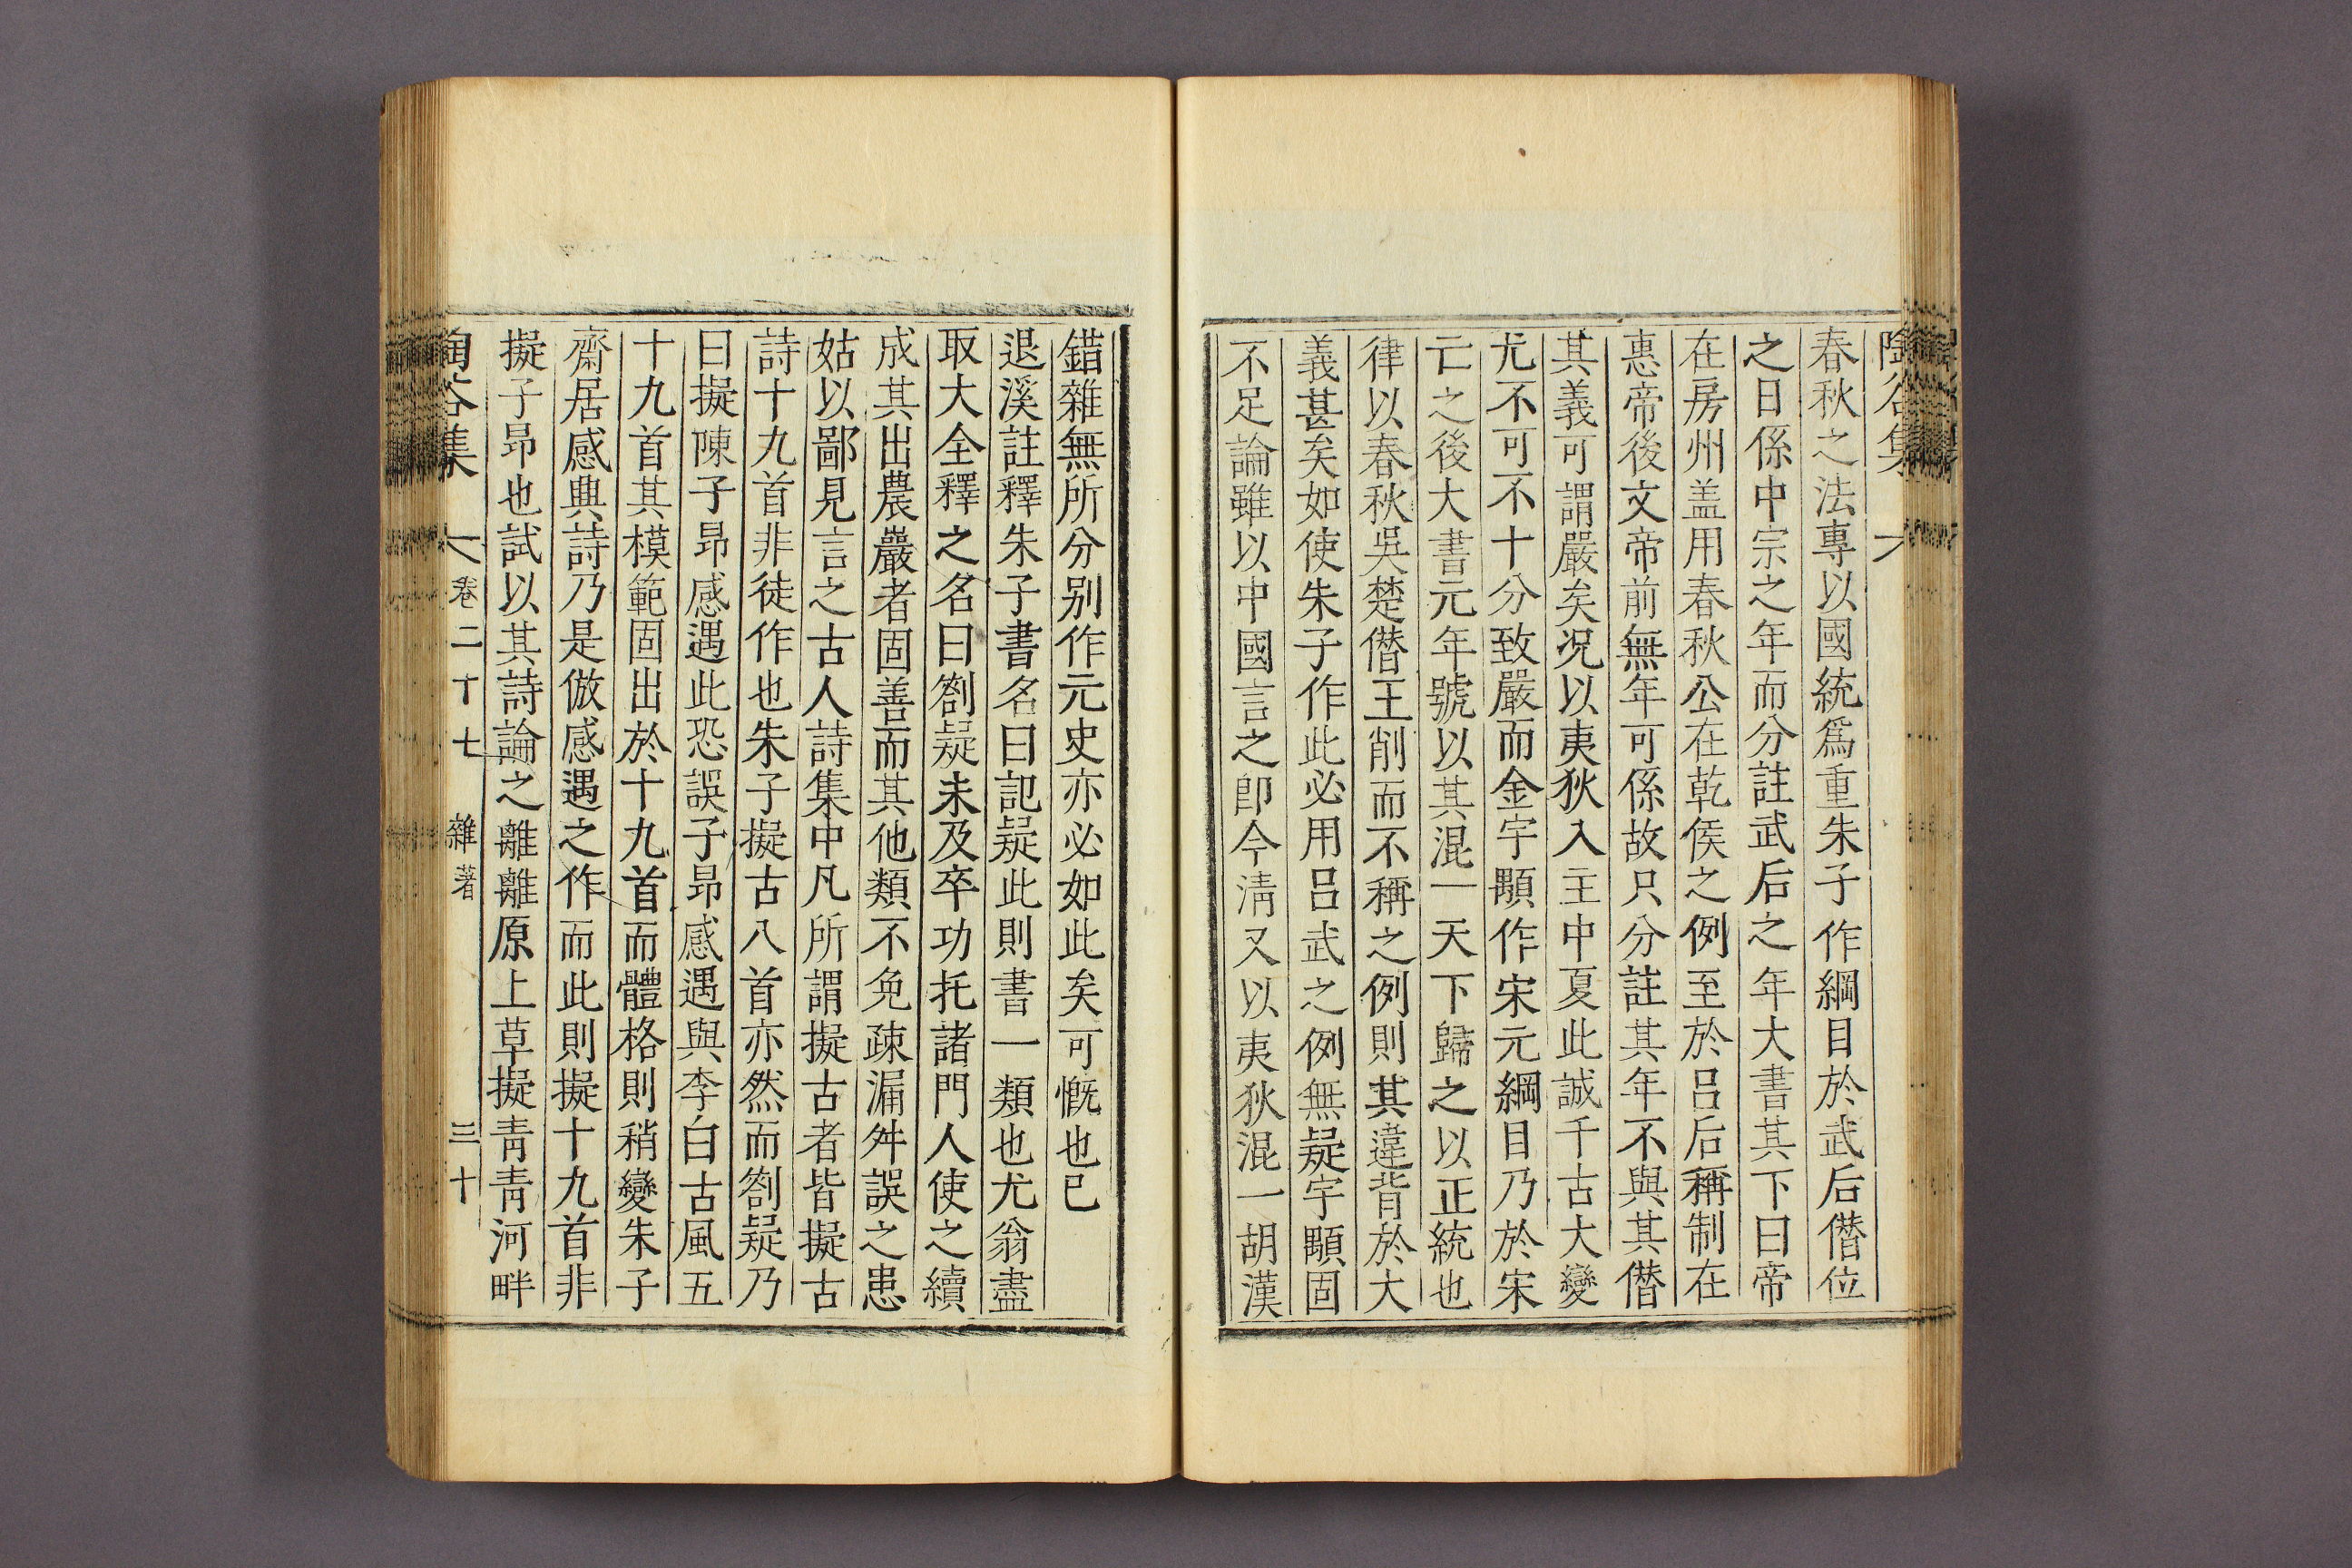 陶谷集
春秋之法專以國統爲重朱子作綱目於武后僭位
之日係中宗之年而分註武后之年大書其下曰帝
在房州盖用春秋公在乾侯之例至於呂后稱制在
惠帝後文帝前無年可係故只分註其年不與其僭
其義可謂嚴矣况以夷狄入主中夏此誠千古大變
尤不可不十分致嚴而金宇顒作宋元綱目乃於宋
亡之後大書元年號以其混一天下歸之以正統也
律以春秋吳楚僭王削而不稱之例則其違背於大
義甚矣如使朱子作此必用呂武之例無疑宇顒固
不足論雖以中國言之卽今淸又以夷狄混一胡漢
錯雜無所分别作元史亦必如此矣可慨也已
退溪註釋朱子書名曰記疑此則書一類也尤翁盡
取大全釋之名曰箚疑未及卒功托諸門人使之續
成其出農巖者固善而其他類不免疎漏舛誤之患
姑以鄙見言之古人詩集中凡所謂擬古者皆擬古
詩十九首非徒作也朱子擬古八首亦然而箚疑乃
曰擬陳子昂感遇此恐誤子昂感遇與李白古風五
十九首其模範固出於十九首而體格則稍變朱子
齋居感興詩乃是倣感遇之作而此則擬十九首非
擬子昂也試以其詩論之離離原上草擬靑靑河畔
陶谷集 卷二十七 雜著 三十